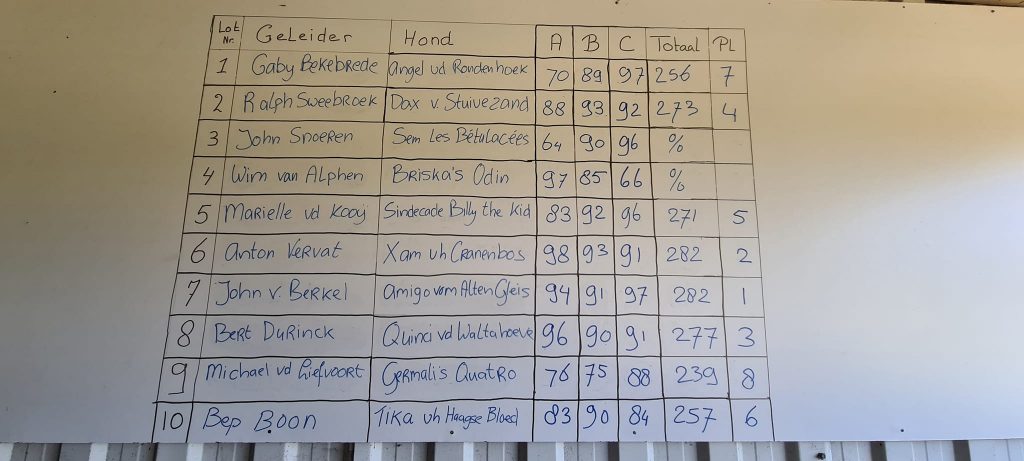 Lot Nr. Geleider Hond A B C Totaal PL
1 Gaby Bekebrede Angel vd Rondenhoek 70 89 97 256 7
2 Ralph Sweebroek Dax v. Stuivezand 88 93 92 273 4
3 John Snoeren Sem Les Bétulacées 64 90 96 %
4 Wim van Alphen Briska's Odin 97 85 66 %
5 Marielle vd Kooij Sindecade Billy the Kid 83 92 96 271 5
6 Anton Vervat Xam vh Cranenbos 98 93 91 282 2
7 John v. Berkel Amigo vom Alten Gleis 94 91 97 282 1
8 Bert Durinck Quinci vd Waltahoeve 96 90 91 277 3
9 Michael vd Liefvoort Germali's Quatro 76 75 88 239 8
10 Bep Boon Tika vh Haagse Bloed 83 90 84 257 6